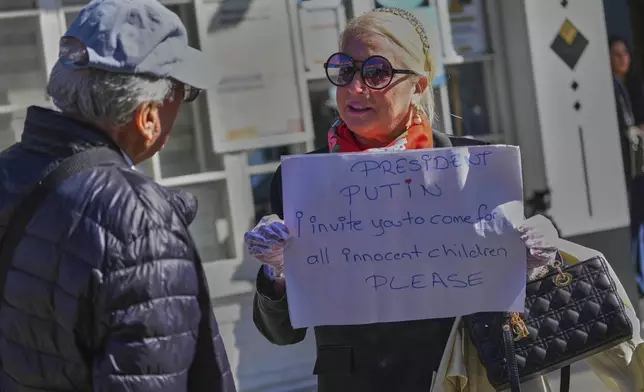 PRESIDENT
PUTIN
i invite you to come for
all innocent children
PLEASE